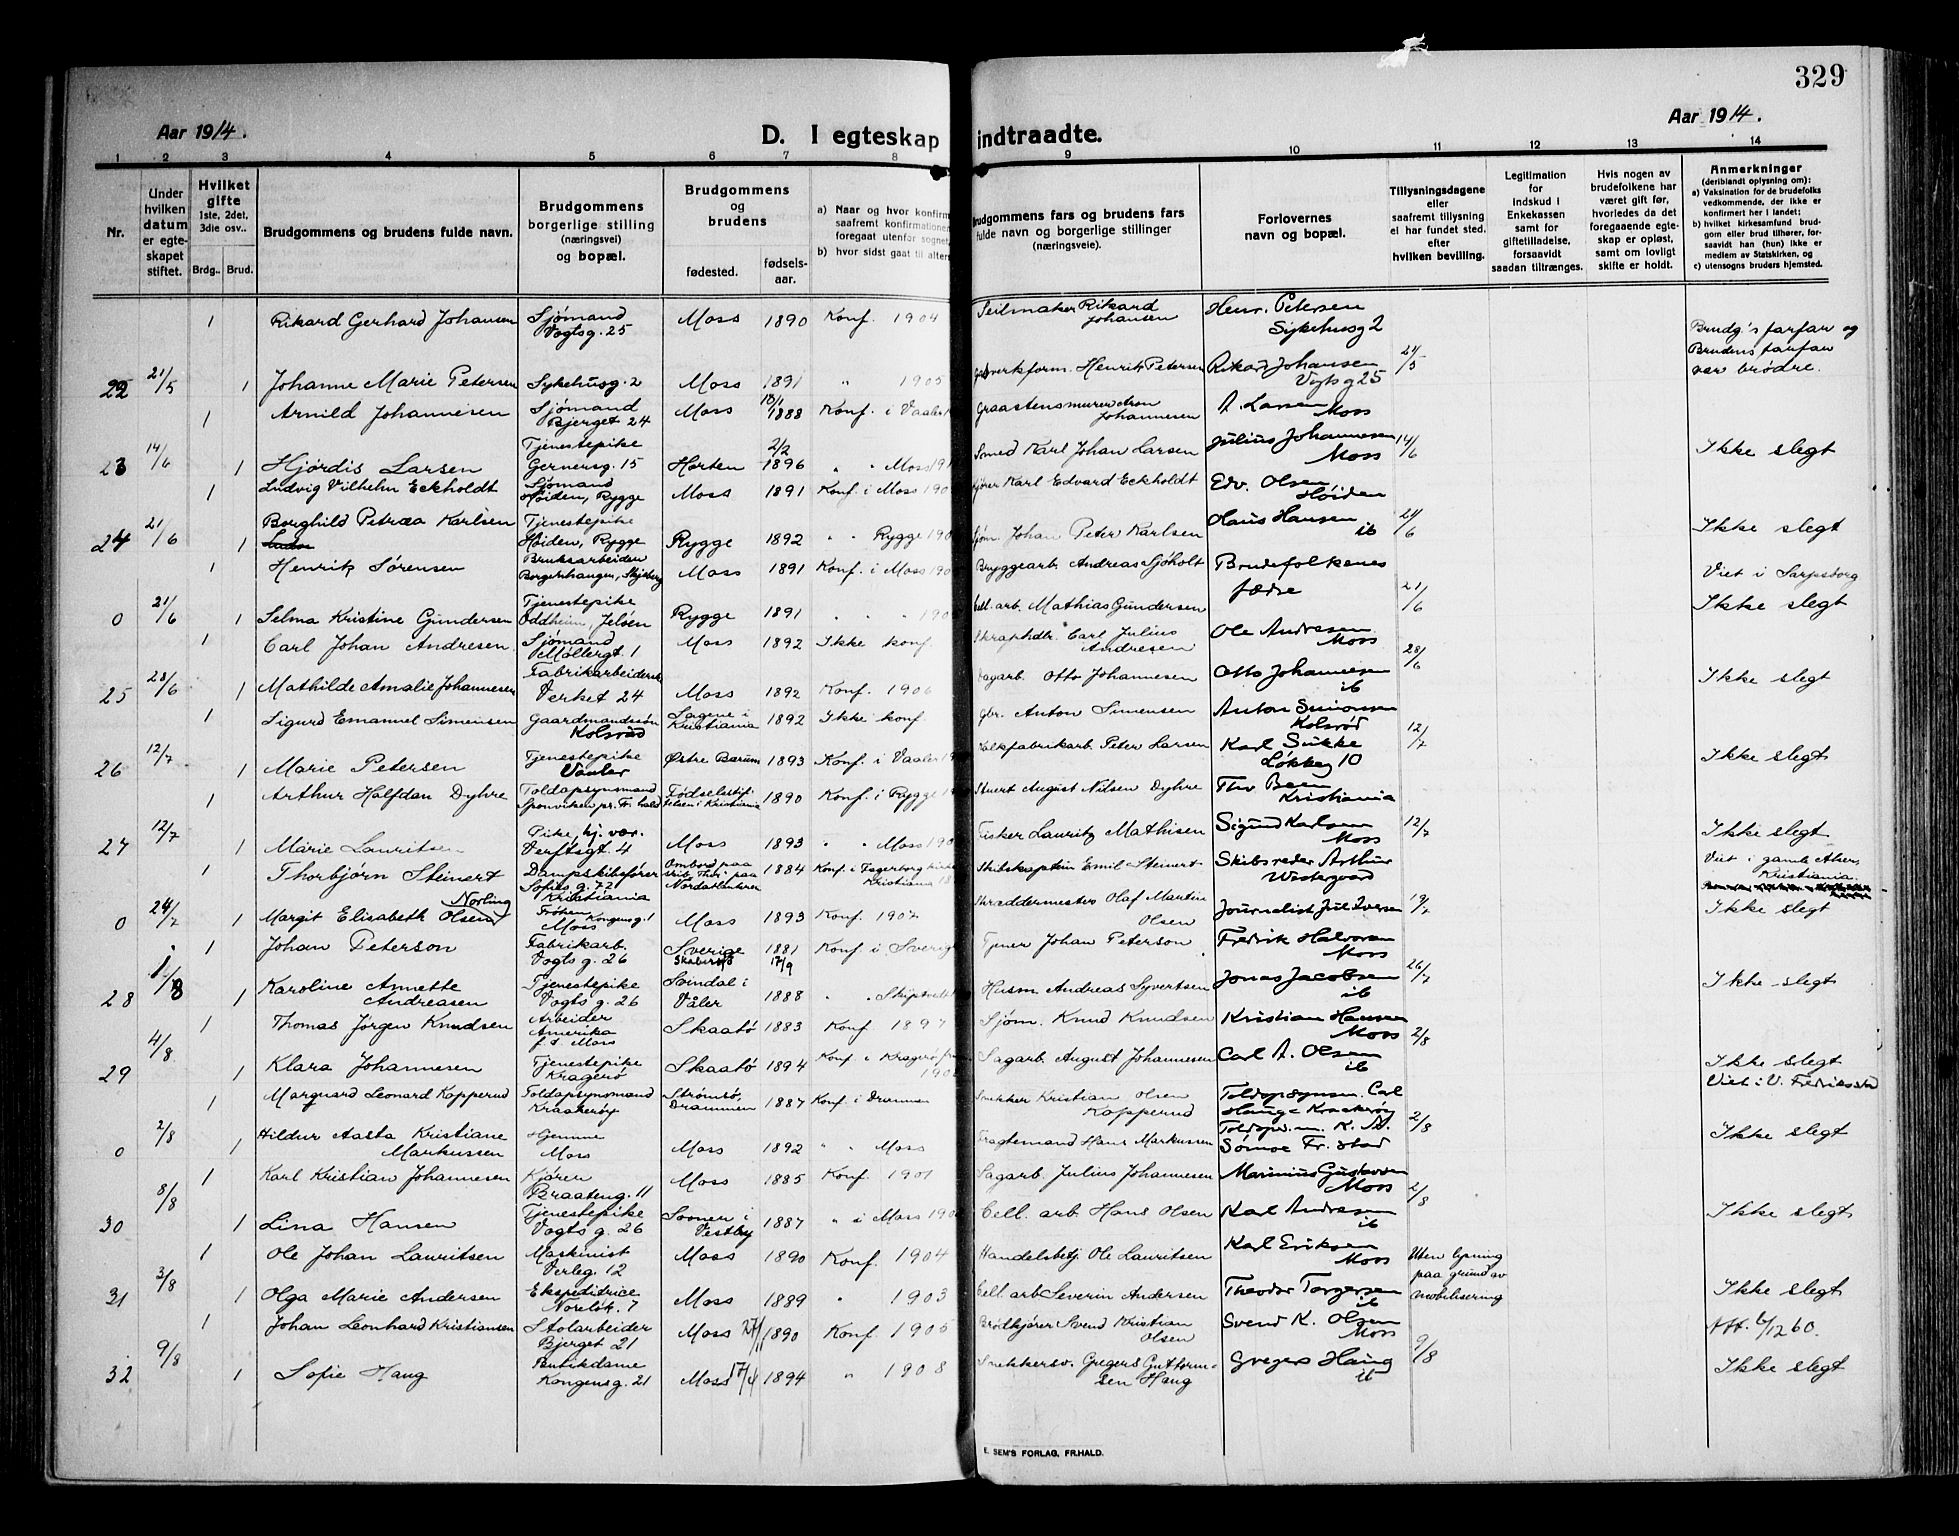 329
Aar 1914.
D. I egteskap indtraadte.
Aar 1914.
1 2 3 4 5 6 7 8 9 10 11 12 13 14
Nr.
Under hvilken datum er egteskapet stiftet.
Hvilket gifte 1ste, 2det, 3die osv.. Brdg.. Brud.
Brudgommens og brudens fulde navn.
Brudgommens borgerlige stilling (næringsvei) og bopæl.
Brudgommens og brudens
fødested. fødsels-aar.
a) Naar og hvor konfirm
saafremt konfirmationen
foregaat utenfor sognet,
b) hvor sidst gaat til alters
Brudgommens fars og brudens fars
fulde navn og borgerlige stillinger
(næringsveie).
Forlovernes
navn og bopæl.
Tillysningsdagene
eller
saafremt tillysning
ei har fundet sted,
efter
hvilken bevilling.
Legitimation
for
indskud i
Enkekassen
samt for
giftetilladelse,
forsaavidt
saadan tiltrænges.
Hvis nogen av
brudefolkene har
været gift før,
hvorledes da det
foregaaende egte-
skap er opløst,
samt om lovligt
skifte er holdt.
Anmerkninger
(deriblandt oplysning om):
a) Vaksination for de brudefolks
vedkommende, der ikke er
konfirmert her i landet;
b) hvilket kirkesamfund brud-
gom eller brud tilhører, for-
saavidt han (hun) ikke er
medlem av Statskirken, og
c) utensogns bruders hjemsted.
1 Rikard Gerhard Johansen Sjømand Vogtsg. 25 Moss 1890 Konf. 1904 Seilmaker Rikard Johansen Henr. Petersen Sykehusg 2
Brudg's farfar og Brudens farfar var brødre.
22 21/5 1 Johanne Marie Petersen Sykehusg. 2 Moss 1891 " 1905 verkform. Henrik Petersen Rikard Johansen Vogtsg 25 21/5
1 Arnild Johannesen Sjømand Bjerget 24 Moss 18/1 1888 Konf. i Vaaler Graastensmurer Aron Johannesen A. Larsen Moss
23 14/6 1 Hjørdis Larsen Tjenestepike Gernersg. 15 Horten 2/2 1896 " " Moss Smed Karl Johan Larsen Julius Johannesen Moss 14/6 Ikke slegt
1 Ludvig Vilhelm Eckholdt Sjømand Høiden, Rygge Moss 1891 Konf. i Moss Karl Edvard Eckholdt Edv. Olsen Høiden
24 21/6 1 Borghild Petræa Karlsen Tjenestepike Høiden, Rygge Rygge 1892 " " Rygge Johan Peter Karlsen Hans Hansen ib 21/6 Ikke slegt
1 Henrik Sørensen Bruksarbeider Borgerhaugen, Skjeberg Moss 1891 Konf. i Moss Bryggearb. Andreas Sjøholt Brudefolkenes fædre Viet i Sarpsborg
0 21/6 1 Selma Kristine Gundersen Tjenestepike Oddheim, Jeløen Rygge 1891 " " Cell. arb. Mathias Gundersen 21/6 Ikke slegt
1 Carl Johan Andresen Sjømand Møllergt. 1 Moss 1892 Ikke konf. Skraphdlr. Carl Julius Andresen Ole Andresen Moss
25 28/6 1 Mathilde Amalie Johannesen Fabrikarbeiderske Verket 24 Moss 1892 Konf. 1906 Sagarb. Otto Johannesen Otto Johannesen ib 28/6 Ikke slegt
1 Sigurd Emanuel Simensen Gaardmandssøn Kolsrød Sagene i Kristiania 1892 Ikke konf. Gbr. Anton Simensen Anton Simonsen Kolsrød
26 12/7 1 Marie Petersen Tjenestepike Vaaler Østre Bærum 1893 Konf. i Vaaler Peter Larsen Karl Sukke Løkkeg 10 12/7 Ikke slegt
1 Arthur Halfdan Dyhre Toldopsynsmand Sponviken pr. Fr. hald Fødselsstiftelsen i Kristiania 1890 Konf. i Rygge Stuert August Nilsen Dyhre Thv. Kristiania
27 12/7 1 Marie Lauritsen Pike, hj. vær. Verftsgt. 4 Moss 1893 " " Moss Fisker Lauritz Mathisen Sigurd Karlsen Moss 12/7 Ikke slegt
1 Thorbjørn Steinert Dampskibsfører Sofies g. 72 Kristiania Ombord paa paa Nordatlanteren 1884 Konf. i Fagerborg Kristiania Skibskaptein Emil Steinert Skibsreder Arthur Westergaard Viet i gamle Akers Kristiania
0 24/7 1 Margit Elisabeth Olsen Norling Frøken Kongensg. 1 Moss Moss 1893 Konf. 1907 Skræddermester Olaf Martin Olsen Journalist Jul Iversen 19/7 Ikke slegt
1 Johan Peterson Fabrikarb. Vogts g. 26 Sverige 1881 17/9 Konf. i Sverige Johan Peterson Fredrik Halvorsen Moss
28 1/8 1 Karoline Annette Andreasen Tjenestepike Vogts g. 26 Soindal i Våler 1888 " " Skiptvet Husm Andreas Syvertsen Jonas Jacobsen ib 26/7 Ikke slegt
1 Thomas Jørgen Knudsen Arbeider Amerika f. t. Moss Skaatø 1883 Konf. 1897 Sjøm. Knud Knudsen Kristian Hansen Moss
29 4/8 1 Klara Johannesen Tjenestepike Kragerø Skaatø 1894 Konf. i Kragerø Sagarb. August Johannesen Carl A. Olsen ib 2/8 Ikke slegt
1 Marquard Leonard Kopperud Toldopsynsmand Kraakerøy Strømsø, Drammen 1887 Konf. i Drammen Snekker Kristian Olsen Kopperud Toldopsynsm. Carl Hauge Kraakerøy Viet i V. Fredriksstad
0 2/8 1 Hildur Aasta Kristiane Markussen Hjemme Moss Moss 1892 " Moss Fragtemand Hans Markussen Toldop. m. K. A. Sømoe Fr. stad 2/8 Ikke slegt
1 Karl Kristian Johannesen Kjører Braateng. 11 Moss 1885 Konf. 1901 Sagarb. Julius Johannesen Marinius Gustavsen Moss
30 8/8 1 Lina Hansen Tjenestepike Vogts g. 26 Soner i Vestby 1887 " i Moss Cell. arb. Hans Olsen Karl Andresen ib 2/8 Ikke slegt
1 Ole Johan Lauritsen Maskinist Verleg. 12 Moss 1890 Konf. 1904 Handelsbetj. Ole Lauritsen Karl Eriksen Moss Uten lysning paa grund av mobilisering
31 3/8 1 Olga Marie Andersen Ekspeditrice Noreløk. 7 Moss 1889 " 1903 Cell arb Severin Andersen Theodor Torgersen ib Ikke slegt
1 Johan Leonhard Kristiansen Stolarbeider Bjerget 21 Moss 27/11 1890 Konf. 1905 Brødkjører Svend Kristian Olsen Svend K. Olsen Moss Att. 6/12 60.
32 9/8 1 Sofie Haug Butikdame Kongensg. 21 Moss 17/4 1894 " 1908 Snekkersv. Gregers Guttormsen Haug Gregers Haug ib 9/8 Ikke slegt
E. SEM'S FORLAG, FR.HALD.